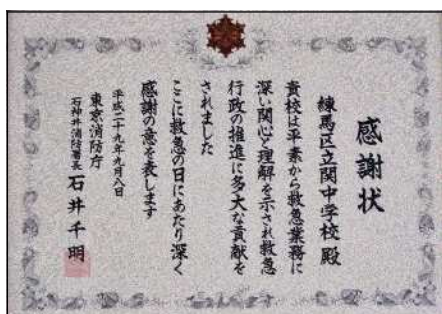 感謝状
練馬区立関中学校殿
貴校は平素から救急業務に
深い関心と理解を示され救急
行政の推進に多大な貢献を
されました
ここに救急の日にあたり深く
感謝の意を表します
平成二十九年九月八日
東京消防庁
石神井消防署長 石井千明